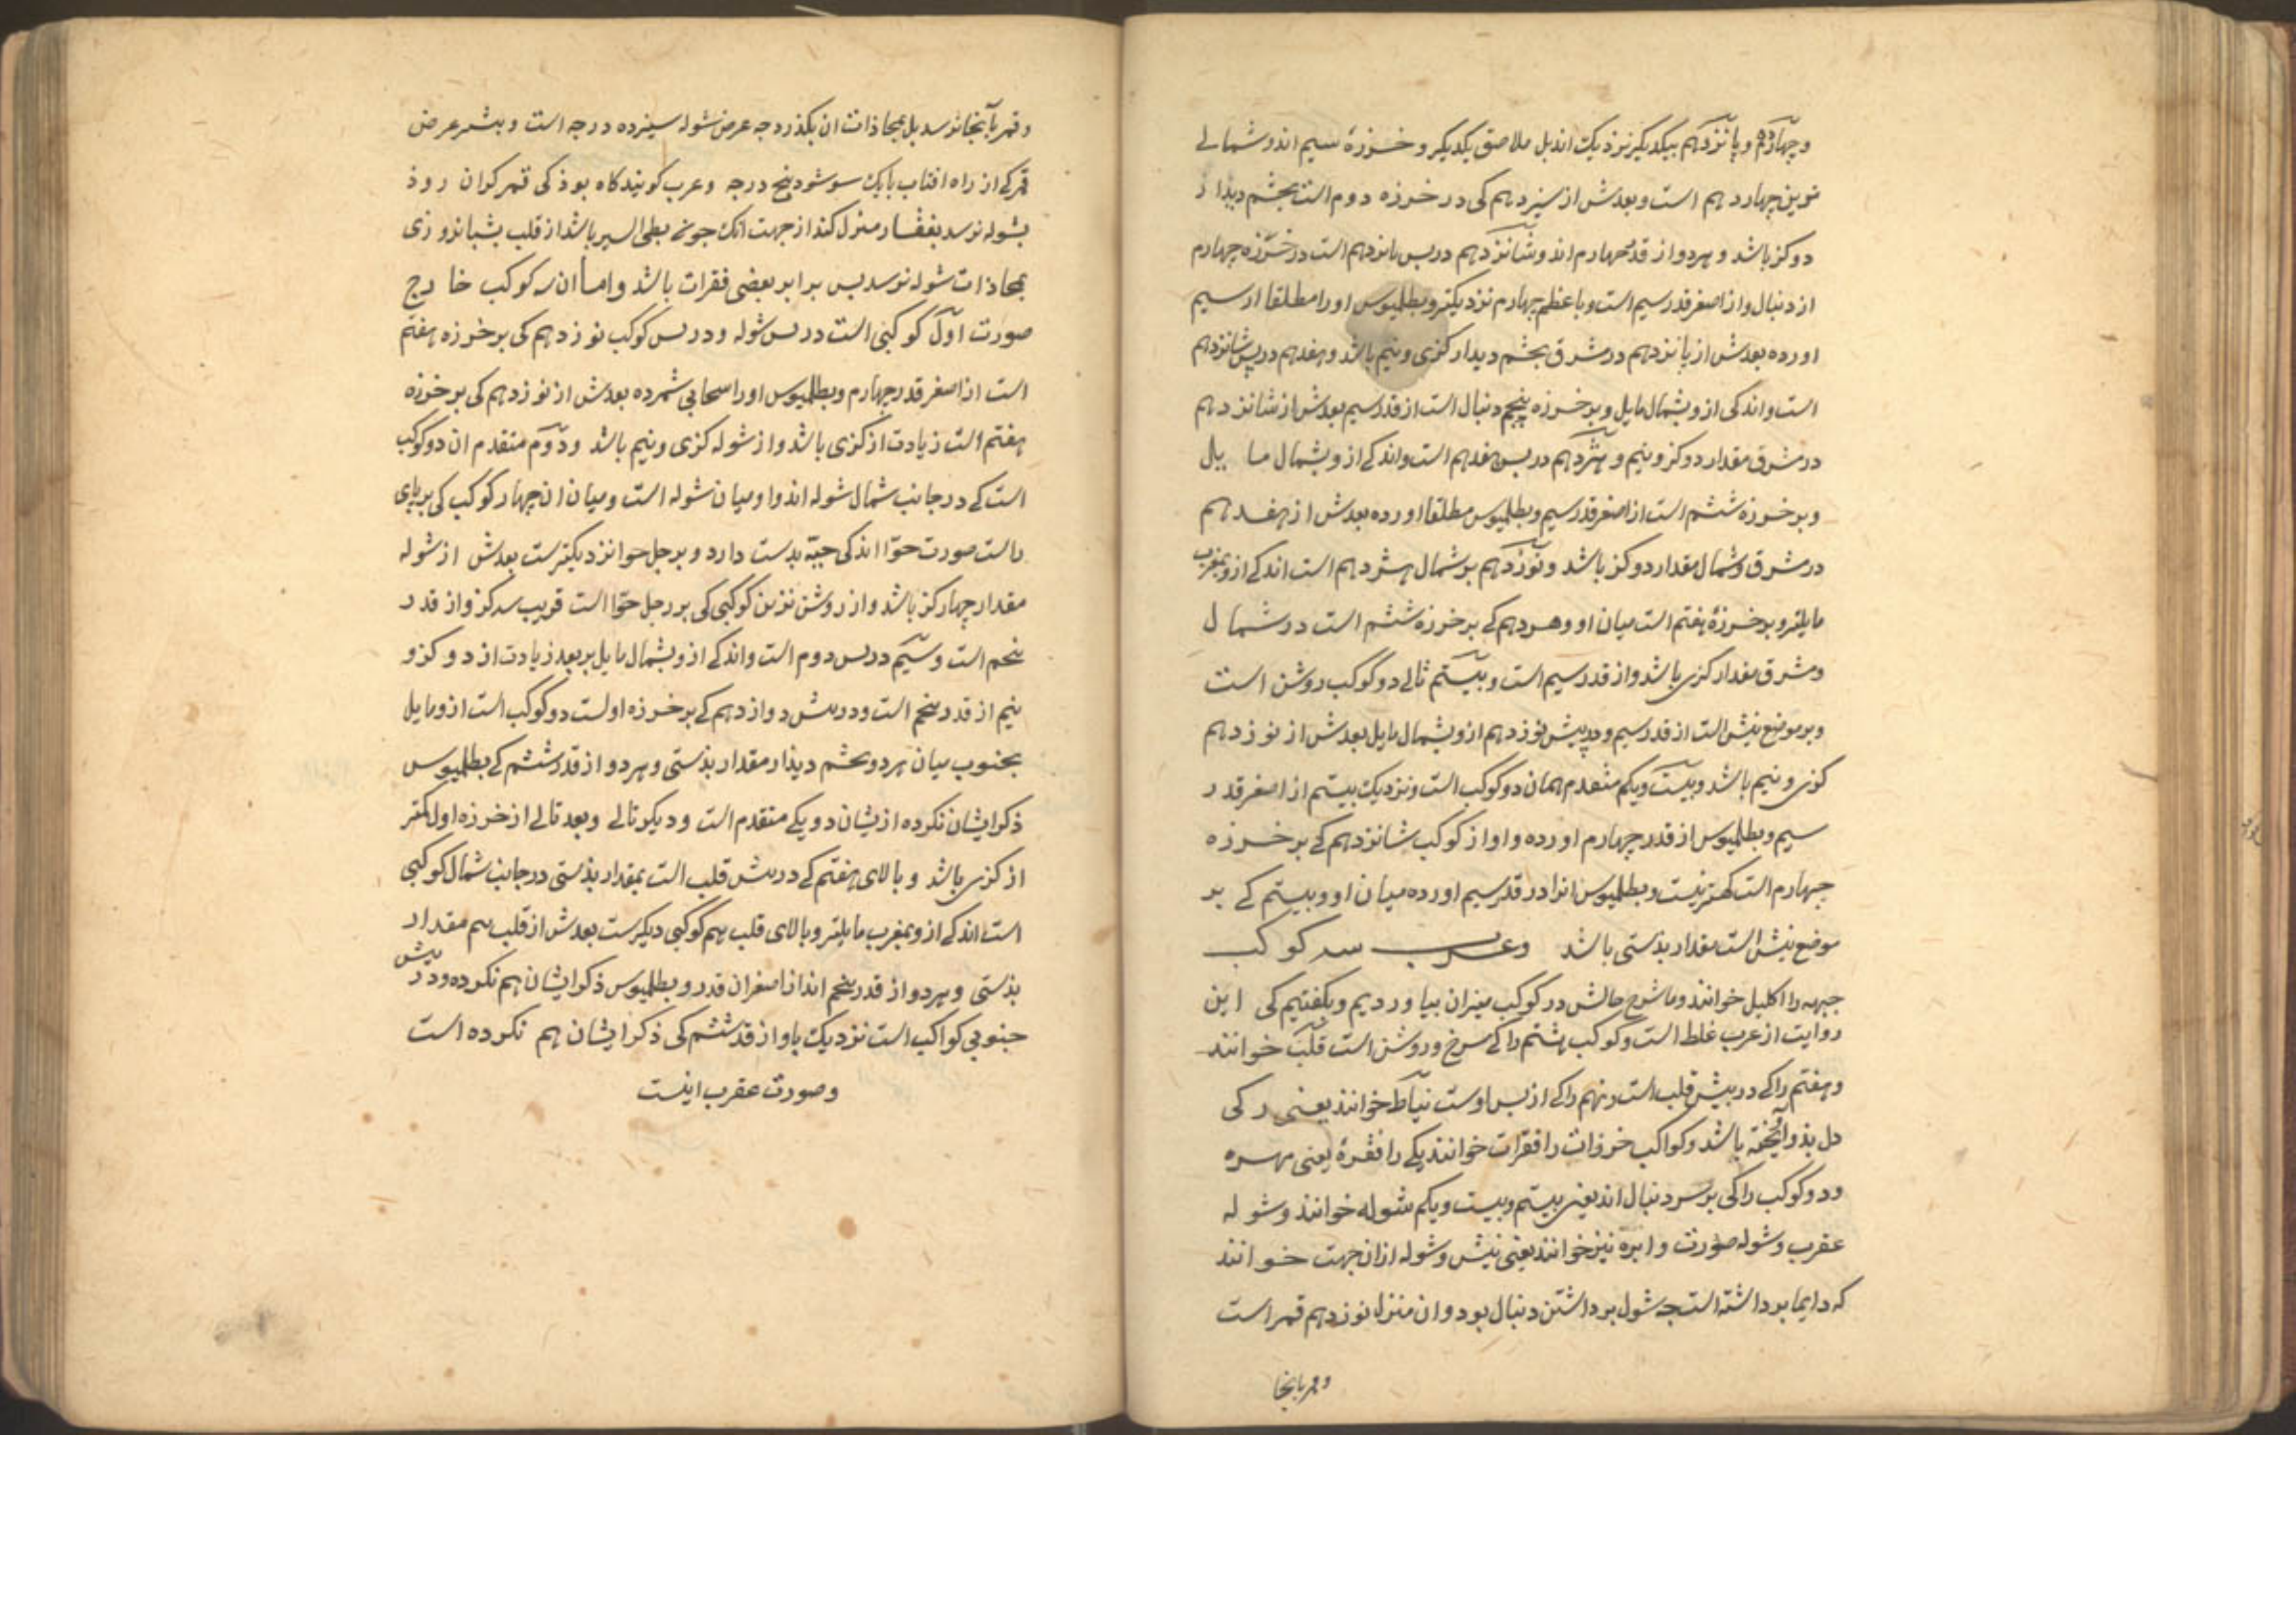 و چهاردهم و پانزدهم بیکدیگر نزدیک اند بل ملاصق یکدیگر و خرزهٔ سیم اند و شمالے
نرین چهاردهم است و بعدش از سیزدهم کی در خرزه دوم است بچشم دیدار
دو کز باشد و هر دو از قدر چهارم اند و شانزدهم در پس پانزدهم است در خرزه چهارم
از دنبال و از اصغر قدر سیم است و باعظم چهارم نزدیکتر و بطلمیوس او را مطلقا از سیم
اورده بعدش از پانزدهم در مشرق بچشم دیدار کزی و نیم باشد و هفدهم در پس شانزدهم
است و اندکی ازو بشمال مایل و بر خرزه پنجم دنبال است از قدر سیم بعدش از شانزدهم
در مشرق مقدار دو کز و نیم و هژدهم در پس هفدهم است و اندکے ازو بشمال مایل
و بر خرزه ششم است از اصغر قدر سیم و بطلمیوس مطلقا اورده بعدش از هفدهم
در مشرق و شمال مقدار دو کز باشد و نوزدهم بر شمال هژدهم است اندکے ازو بمغرب
مایلتر و بر خرزهٔ هفتم است میان او و هژدهم کے بر خرزه ششم است در شمال
و مشرق مقدار کزی باشد و از قدر سیم است و بیستم تالے دو کوکب روشن است
و بر موضع نیش است از قدر سیم و در پیش نوزدهم ازو بشمال مایل بعدش از نوزدهم
کزی و نیم باشد و بیست و یکم متقدم همان دو کوکب است و نزدیک بیستم از اصغر قدر
سیم و بطلمیوس از قدر چهارم اورده و او از کوکب شانزدهم کے بر خرزه
چهارم است کهتر نیست و بطلمیوس انرا در قدر سیم اورده میان او و بیستم کے بر
موضع نیش است مقدار بذستی باشد وعرب سه کوکب
جبهه را اکلیل خوانند و ما شرح حالش در کوکب میزان بیاوردیم و بکفتیم کی این
روایت از عرب غلط است و کوکب هشتم را کے سرخ و روشن است قلب خوانند
و هفتم را کے در پیش قلب است و نهم را کے از پس اوست نیاط خوانند یعنی رکی
دل بذو آویخته باشد و کواکب خرزات را فقرات خوانند یکے را فقرهٔ یعنی مهره
و دو کوکب را کی بر سر دنبال اند یعنی بیستم و بیست و یکم شوله خوانند و شوله
عقرب و شوله صورت و ابره نیز خوانند یعنی نیش و شوله ازان جهت خوانند
که دایما برداشته است چه شول برداشتن دنبال بود و ان منزل نوزدهم قمر است
و قمر بآنجا
و قمر بآنجا نرسد بل بمحاذات ان بکذرد چه عرض شوله سیزده درجه است و بیشتر عرض
قمر کے از راه افتاب بایک سو شود پنج درجه و عرب کویند کاه بوذ کی قمر کران روذ
بشوله نرسد بفقار منزل کند از جهت انک چون بطی السیر باشد از قلب بشبانروزی
بمحاذات شوله نرسد پس برابر بعضی فقرات باشد و اما ان سه کوکب خارج
صورت اول کوکبی است در پس شوله و در پس کوکب نوزدهم کی بر خرزه هفتم
است از اصغر قدر چهارم و بطلمیوس او را سحابی شمرده بعدش از نوزدهم کی بر خرزه
هفتم است زیادت از کزی باشد و از شوله کزی و نیم باشد و دوم متقدم ان دو کوکب
است کے در جانب شمال شوله اند و او میان شوله است و میان ان چهار کوکب کی بر پای
راست صورت حوّا اند کی حیّه بدست دارد و بر رجل حوا نزدیکترست بعدش از شوله
مقدار چهار کز باشد و از روشن ترین کوکبی کی بر رجل حوّا است قریب سه کز و از قدر
پنجم است و سیم در پس دوم است و اندکے ازو بشمال مایل بر بعد زیادت از دو کز و
نیم از قدر پنجم است و در پیش دوازدهم کے بر خرزه اولست دو کوکب است ازو مایل
بجنوب میان هر دو بچشم دیدار مقدار بذستی و هر دو از قدر ششم کے بطلمیوس
ذکر ایشان نکرده ازیشان دو یکے متقدم است و دیکر تالے و بعد تالے از خرزه اول کمتر
از کزی باشد و بالای هفتم کے در پیش قلب است بمقدار بذستی در جانب شمال کوکبی
است اندکے ازو بمغرب مایلتر و بالای قلب هم کوکبی دیکرست بعدش از قلب هم مقدار
بذستی و هر دو از قدر پنجم اند از اصغر ان قدر و بطلمیوس ذکر ایشان هم نکرده و در پیش
جنوبی کواکب است نزدیک باو از قدر ششم کی ذکر ایشان هم نکرده است
و صورت عقرب اینست